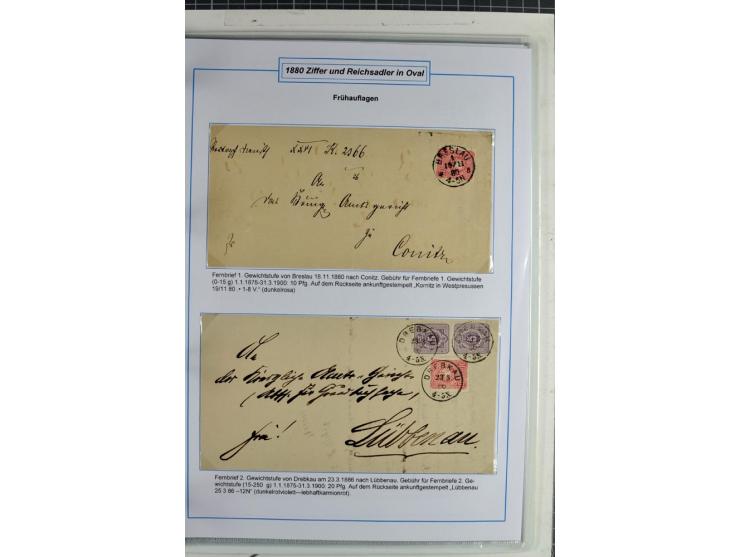 1880 Ziffer und Reichsadler in Oval
Frühauflagen
K. 2366
BRESLAU
1
18/11
80
* 4-5N
An
das Königl. Amtsgericht
zu
Conitz
Fernbrief 1. Gewichtstufe von Breslau 18.11.1880 nach Conitz. Gebühr für Fernbriefe 1. Gewichtstufe
(0-15 g) 1.1.1875-31.3.1900: 10 Pfg. Auf dem Rückseite ankunftgestempelt „Kornitz in Westpresussen
19/11 80 • 1-8 V.“ (dunkelrosa)
DREBKAU
23.3
4-5N
DREBKAU
DREBKAU
23.3
4-5N
An
der Königliche Amts-Gericht
Lübbenau.
Fernbrief 2. Gewichtstufe von Drebkau am 23.3.1886 nach Lübbenau. Gebühr für Fernbriefe 2. Ge-
wichtstufe (15-250 g) 1.1.1875-31.3.1900: 20 Pfg. Auf dem Rückseite ankunftgestempelt „Lübbenau
25 3 86 –12N“ (dunkelrotviolett—lebhaftkarmionrot).